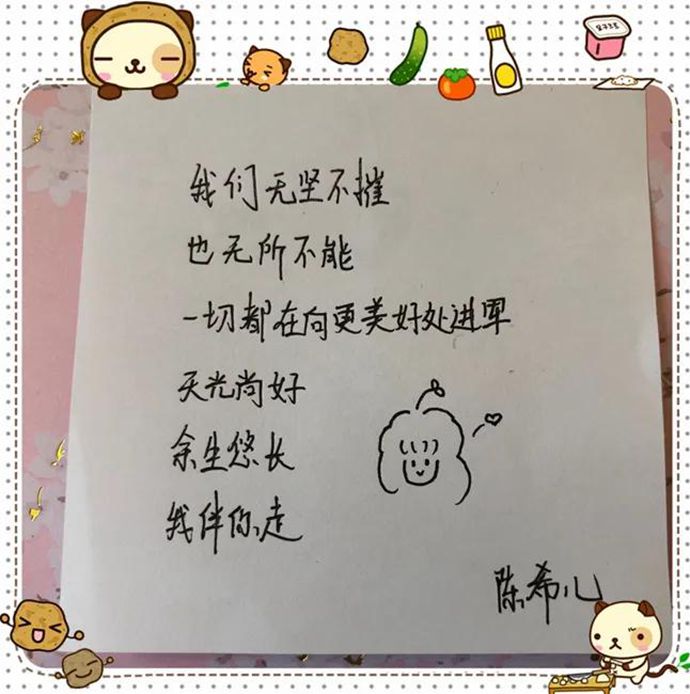 我们无坚不摧
也无所不能
一切都在向更美好处进军
天光尚好
余生悠长
我伴你走
陈希儿